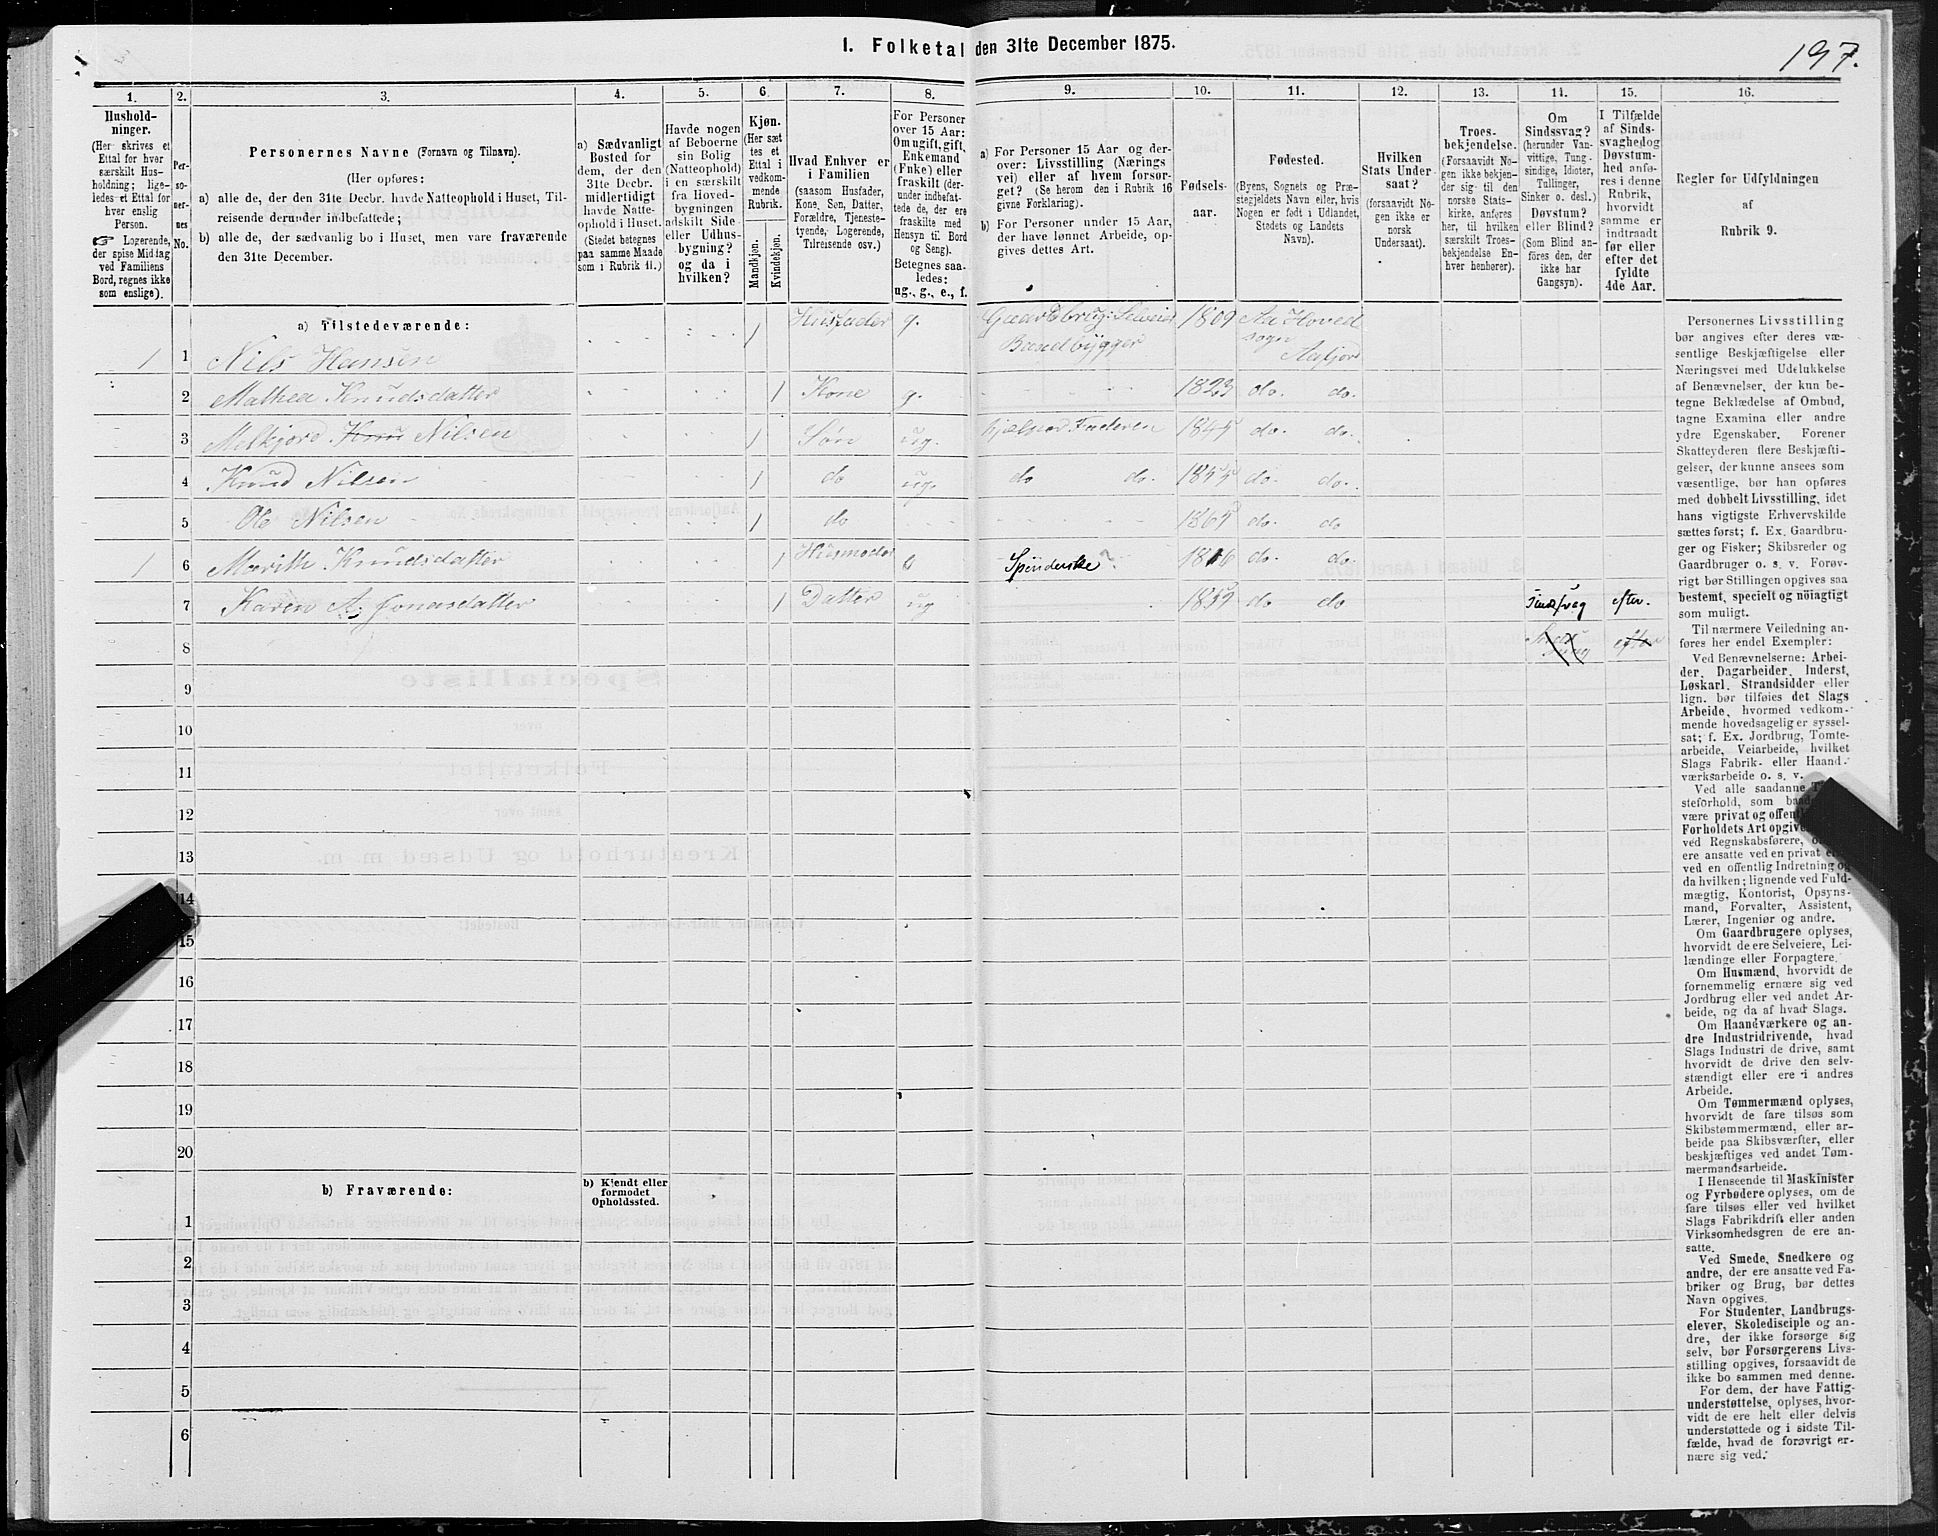 I. Folketal den 31te December 1875.
197.
1. 2. 3. 4. 5. 6. 7. 8. 9. 10. 11. 12. 13. 14. 15. 16.
Hushold-
ninger.
(Her skrives et
Ettal for hver
særskilt Hus-
holdning; lige-
ledes et Ettal for
hver enslig
Person.
☞ Logerende,
der spise Middag
ved Familiens
Bord, regnes ikke
som enslige).
Per-
so-
ner-
nes
No.
Personernes Navne (Fornavn og Tilnavn).
(Her opføres:
a) alle de, der den 31te Decbr. havde Natteophold i Huset, Til-
reisende derunder indbefattede;
b) alle de, der sædvanlig bo i Huset, men vare fraværende
den 31te December.
a) Sædvanligt
Bosted for
dem, der den
31te Decbr.
midlertidigt
havde Natte-
ophold i Huset.
(Stedet betegnes
paa samme Maade
som i Rubrik 11.)
Havde nogen
af Beboerne
sin Bolig
(Natteophold)
i en særskilt
fra Hoved-
bygningen
adskilt Side-
eller Udhus-
bygning?
og da i
hvilken?
Kjøn.
(Her sæt
tes et
Ettal i
vedkom-
mende
Rubrik.
Mandkjøn.
Kvindekjøn.
Hvad Enhver er
i Familien
(saasom Husfader,
Kone, Søn, Datter,
Forældre, Tjeneste-
tyende, Logerende,
Tilreisende osv.)
For Personer
over 15 Aar:
Om ugift, gift,
Enkemand
(Enke) eller
fraskilt (der-
under indbefat-
tede de, der ere
fraskilte med
Hensyn til Bord
og Seng).
Betegnes saa-
ledes:
ug., g., e., f.
a) For Personer 15 Aar og der-
over: Livsstilling (Nærings
vei) eller af hvem forsør-
get? (Se herom den i Rubrik 16
givne Forklaring).
b) For Personer under 15 Aar,
der have lønnet Arbeide, op-
gives dettes Art.
Fødsels-
aar.
Fødested.
(Byens, Sognets og Præ-
stegjeldets Navn eller, hvis
Nogen er født i Udlandet,
Stedets og Landets
Navn).
Hvilken
Stats Under
saat?
(forsaavidt No-
gen ikke er
norsk
Undersaat).
Troes-
bekjendelse.
(Forsaavidt No-
gen ikke bekjen-
der sig til den
norske Stats-
kirke, anføres
her, til hvilken
særskilt Troes-
bekjendelse En-
hver henhører).
Om
Sindssvag?
(herunder Van-
vittige, Tung-
sindige, Idioter,
Tullinger,
Sinker o. desl.)
Døvstum?
eller Blind?
(Som Blind an-
føres den, der
ikke har
Gangsyn).
I Tilfælde
af Sinds-
svaghed og
Døvstum-
hed anfø-
res i denne
Rubrik,
hvorvidt
samme er
indtraadt
før eller
efter det
fyldte
4de Aar.
Regler for Udfyldningen
af
Rubrik 9.
a) Tilstedeværende:
1 1 Nils Hansen 1 Husfader g. Gaardbrug: Selveier Baadbygger 1809 Aa Hoved sogn Aafjord
2 Mathea Knudsdatter 1 Kone g. 1823 do. do.
3 Melkjord Knu Nilsen 1 Søn ug. hjelper Faderen 1845 do. do.
4 Knud Nilsen 1 do ug. do do. 1855 do. do.
5 Ole Nilsen 1 do 1865 do. do
1 6 Marith Knudsdatter 1 Husmoder Spinderske 1816 do. do.
7 Karen A. Jonasdatter 1 Datter ug 1859 do do Sindssvag efter.
8 efter
9
10
11
12
13
14
15
16
17
18
19
20
b) Fraværende:
b) Kjendt eller
formodet
Opholdssted.
1
2
3
4
5
6
Personernes Livsstilling
bør angives efter deres væ-
sentlige Beskjæftigelse eller
Næringsvei med Udelukkelse
af Benævnelser, der kun be-
tegne Beklædelse af Ombud,
tagne Examina eller andre
ydre Egenskaber. Forener
Skatteyderen flere Beskjæfti-
gelser, der kunne ansees som
væsentlige, bør han opføres
med dobbelt Livsstilling, idet
hans vigtigste Erhvervskilde
sættes først; f. Ex. Gaardbru-
ger og Fisker; Skibsreder og
Gaardbruger o. s. v. Forøv-
rigt bør Stillingen opgives saa
bestemt, specielt og nöiagtigt
som muligt.
Til nærmere Veiledning an-
føres her endel Exempler:
Ved Benævnelserne: Arbei-
der, Dagarbeider, Inderst,
Løskarl, Strandsidder eller
lign. bør tilføies det Slags
Arbeide, hvormed vedkom-
mende hovedsagelig er syssel-
sat; f. Ex. Jordbrug, Tomte-
arbeide, Veiarbeide, hvilket
Slags Fabrik- eller Haand-
værksarbeide o. s. v.
Ved alle saadanne
steforhold, som
være privat og
Forholdets Art
ved Regnskabsførere,
ere ansatte ved en privat
ved en offentlig Indretning og
da hvilken; lignende ved Fuld-
mægtig, Kontorist, Opsyns-
mand, Forvalter, Assistent,
Lærer, Ingeniør og andre.
Om Gaardbrugere oplyses,
hvorvidt de ere Selveiere, Lei-
lændinge eller Forpagtere.
Om Husmænd, hvorvidt de
fornemmelig ernære sig ved
Jordbrug eller ved andet Ar-
beide, og da af hvad Slags.
Om Haandværkere og an-
dre Industridrivende, hvad
Slags Industri de drive, samt
hvorvidt de drive den selv-
stændigt eller ere i andres
Arbeide.
Om Tømmermænd oplyses,
hvorvidt de fare tilsøs som
Skibstømmermænd, eller ar-
beide paa Skibsværfter, eller
beskjæftiges ved andet Tøm-
mermandsarbeide.
I Henseende til Maskinister
og Fyrbødere oplyses, om de
fare tilsøs eller ved hvilket
Slags Fabrikdrift eller anden
Virksomhedsgren de ere an-
satte.
Ved Smede, Snedkere og
andre, der ere ansatte ved Fa-
briker og Brug, bør dettes
Navn opgives.
For Studenter, Landbrugs-
elever, Skoledisciple og an-
dre, der ikke forsørge sig
selv, bør Forsørgerens Livs-
stilling opgives, forsaavidt de
ikke bo sammen med denne.
For dem, der have Fattig-
understøttelse, oplyses, hvor-
vidt de ere helt eller delvis
understøttede og i sidste Til-
fælde, hvad de forøvrigt er-
nære sig ved.